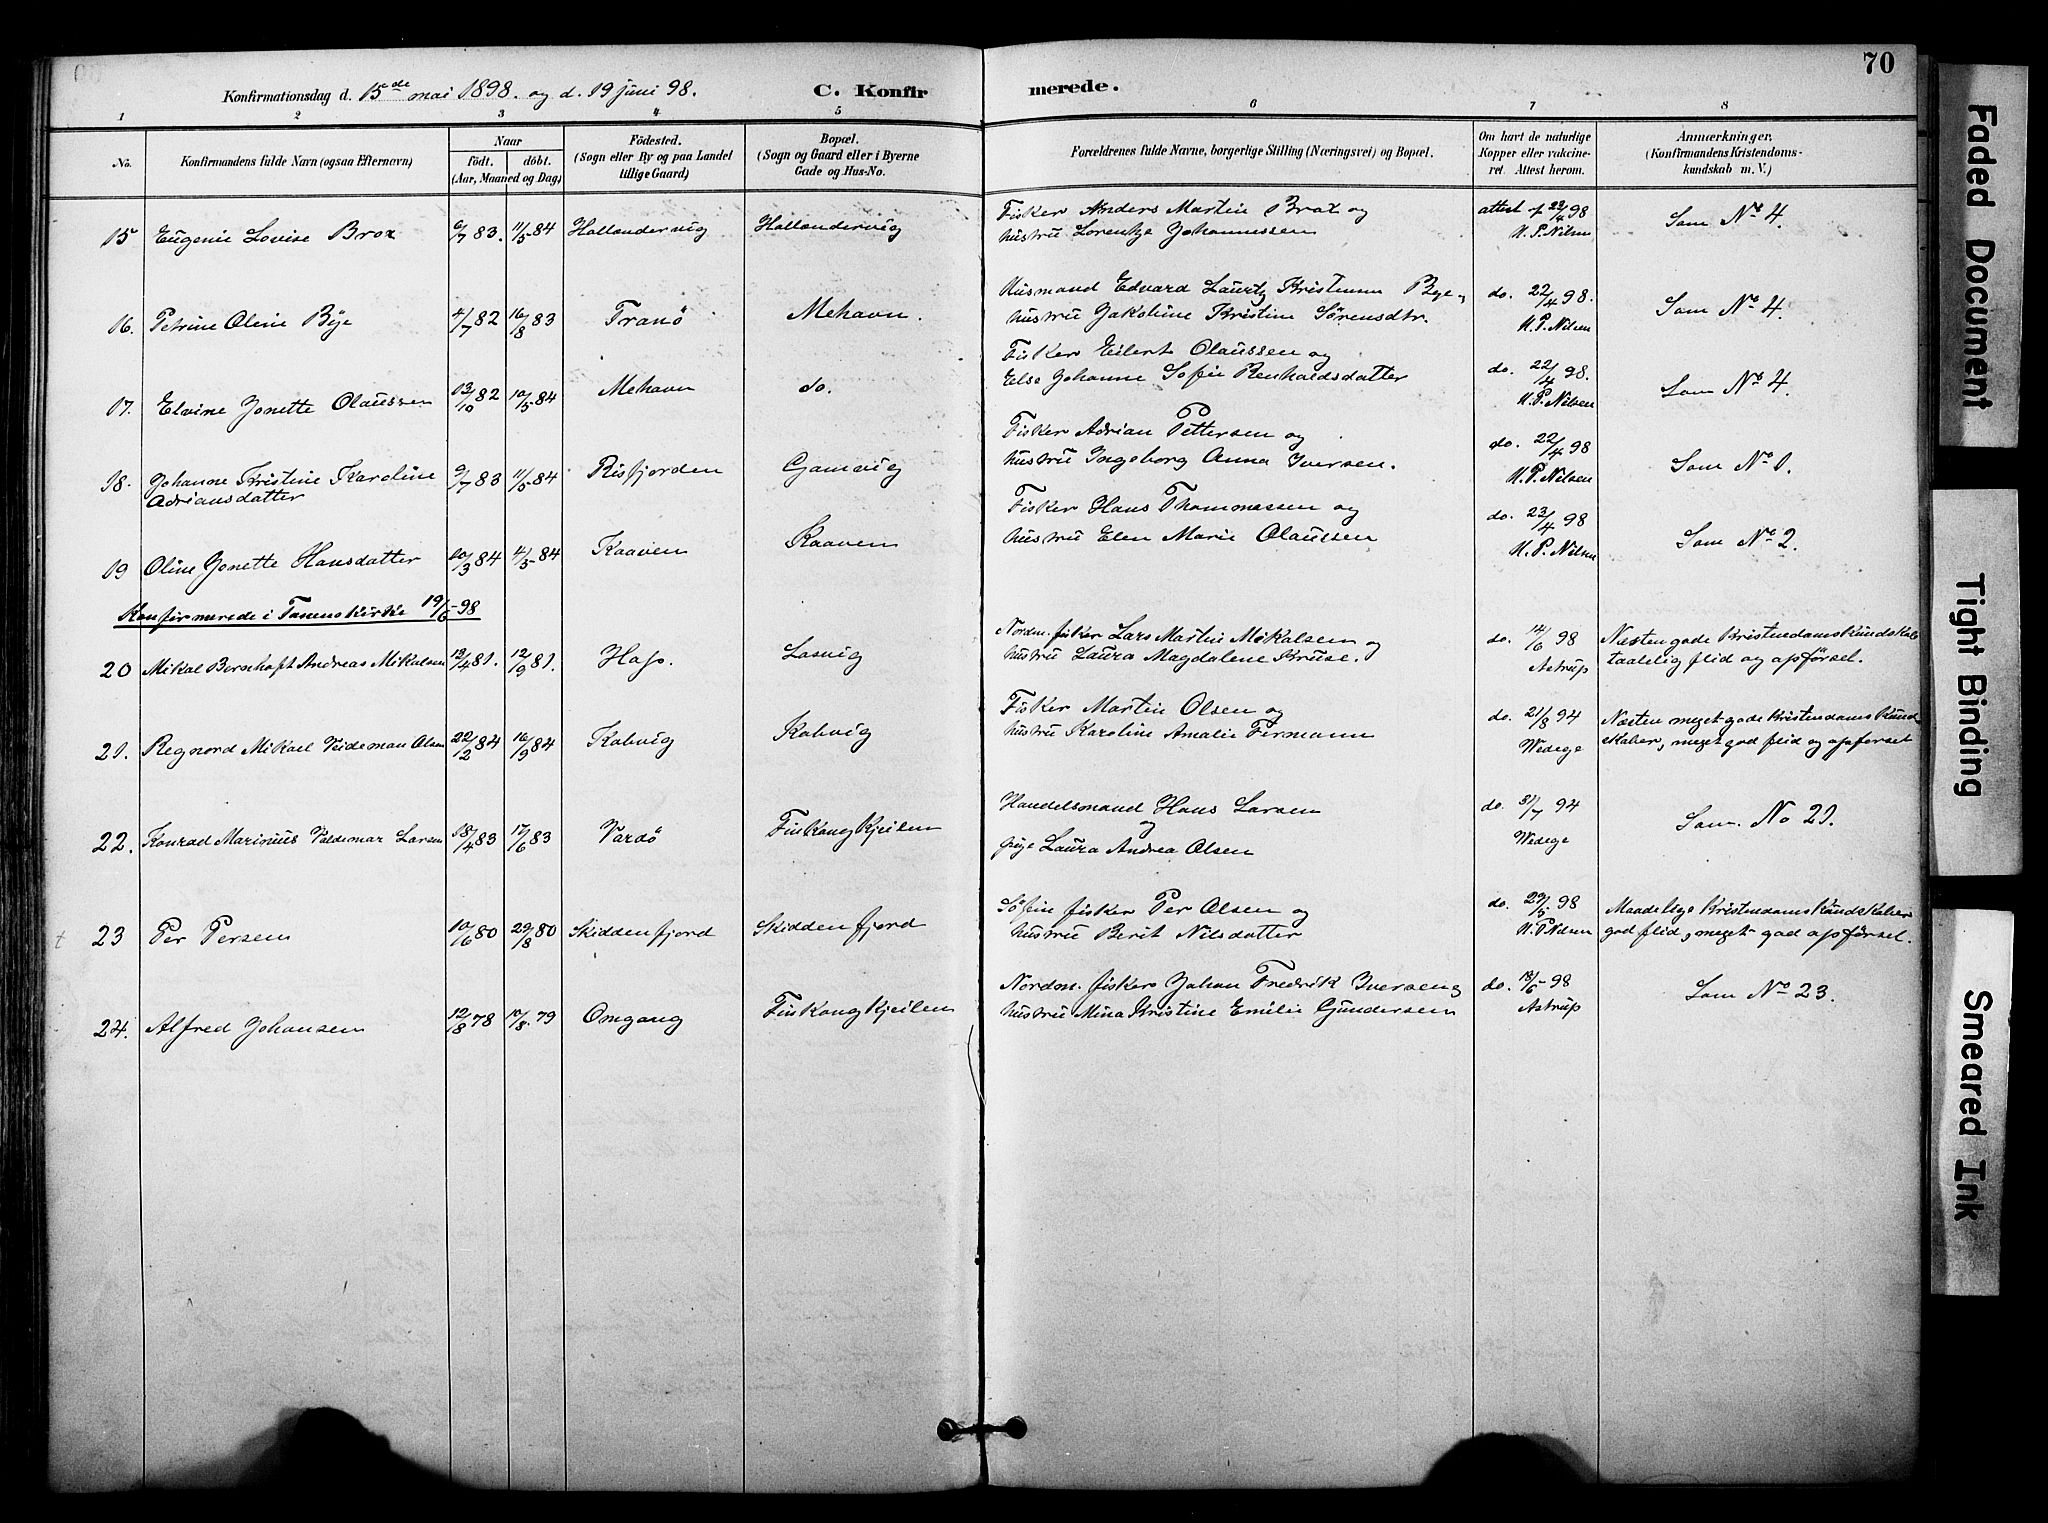 70
Konfirmationsdag d. 15de mai 1898. og d. 19 juni 98. C. Konfirmerede.
1 2 3 4 5 6 7 8
No. Konfirmandens fulde Navn (ogsaa Efternavn) Naar födt. döbt. (Aar, Maaned og Dag) Födested. (Sogn eller By og paa Landet tillige Gaard) Bopæl. (Sogn og Gaard eller i Byerne Gade og Hus-No. Forældrenes fulde Navne, borgerlige Stilling (Næringsvei) og Bopæl. Om havt de naturlige Kopper eller vakcineret. Attest herom. Anmærkninger. (Konfirmandens Kristendomskundskab m. V.)
15 Eugenie Lovise Brox 6/7 83. 11/5 84 Hollændervig Hollændervig Fisker Anders Martin Brox og attest f 22/4 98 Som No 4.
hustru Lorentze Johannessen H. P. Nilsen
16. Petrine Oline Bye 4/7 82 16/8 83 Tranö Mehavn. Husmand Edvard Lauritz Kristensen Bye o do. 22/4 98. Som No 4.
hustru Jakobine Kristine Sörensdtr. H. P. Nilsen
17. Elvine Jonette Olaussen 13/10 82 10/5 84 Mehavn do. Fisker Eilert Olaussen og do. 22/4 98. Som No 4.
Else Johanne Sofie Renholdsdatter H. P. Nilsen
18. Johanne Kristine Karoline 9/7 83 11/5 84 Risfjorden Gamvig Fisker Adrian Pettersen og do. 22/4 98 Som No 1.
Adriansdatter hustru Ingeborg Anna Iversen. H. P. Nilsen
19 Oline Jonette Hansdatter 20/3 84 4/5 84 Kaaven Kaaven Fisker Hans Thommassen og do. 23/4 98 Som No 2.
hustru Elen Marie Olaussen H. P. Nilsen
Konfirmerede i Tanens Kirke 19/6 98
20 Mikal Bernhoft Andreas Mikalsen 13/4 81. 12/9 81. Hop. Losvig Nordm. fisker Lars Martin Mikalsen og do. 14/6 98 Næsten gode Kristendomskundskab
hustru Laura Magdalene Kruse. Astrup taalelig flid og opförsel.
21. Regnord Mikael Veideman Olsen 22/2 84 16/9 84 Kalvig Kalvig Fisker Martin Olsen og do. 21/8 94 Næsten meget gode Kristendomskund
hustru Karoline Amalie Fermann Wedege skaber, meget god flid og opförsel
22. Konrad Marinius Valdemar Larsen 18/4 83 17/6 83 Vardö Finkongkjeilen Handelsmand Hans Larsen do. 31/7 94 Som No 21.
og
pige Laura Andrea Olsen Wedege
23 Per Persen 10/6 80 29/8 80 Skiddenfjord Skiddenfjord Söfin fisker Per Olsen og do. 29/5 98 Maadelige Kristendomskundskaber
hustru Berit Nilsdatter H. P. Nilsen god flid, meget god opförsel.
24. Alfred Johansen 12/8 78 10/8. 79 Omgang Finkongkjeilen Nordm. fisker Johan Fredrik Iversen og do. 18/6 98 Som No 23.
hustru Mina Kristine Emilie Gundersen Astrup
Faded Document
Tight Binding
Smeared Ink